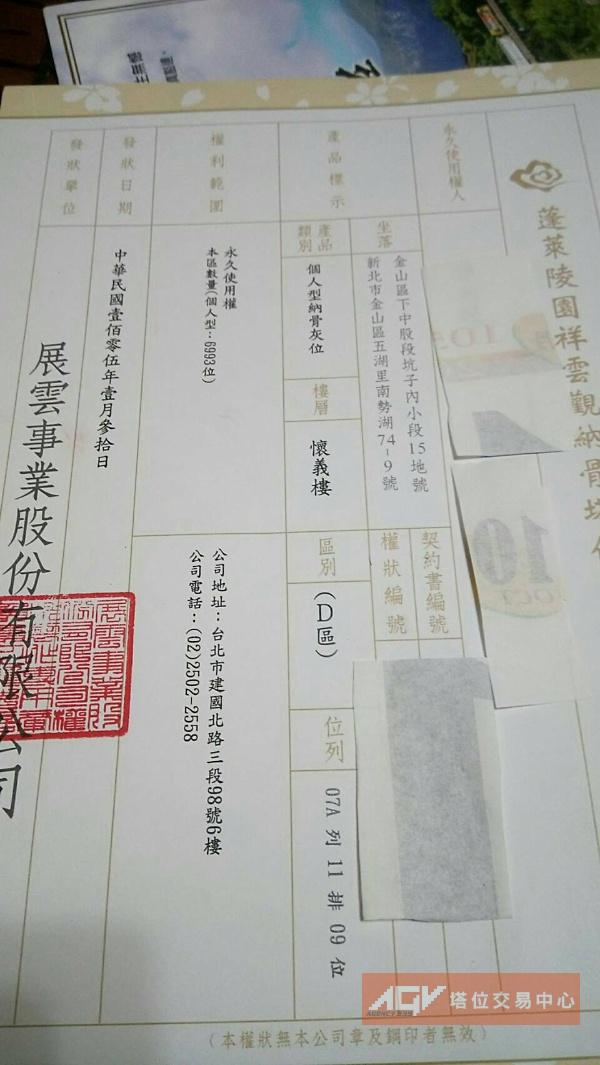 蓬萊陵園祥雲觀納骨塔位
永久使用權人
產品標示
坐落
金山區下中股段坑子內小段15地號
新北市金山區五湖里南勢湖74-9號
契約書編號
權狀編號
產品類別
個人型納骨灰位
樓層
懷義樓
區別
(D區)
位列
07A 列 11 排 09 位
權利範圍
永久使用權
本區數量(個人型:6993位)
公司地址:台北市建國北路三段98號6樓
公司電話:(02)2502-2558
發狀日期
中華民國壹佰零伍年壹月參拾日
發狀單位
展雲事業股份有限公司
(本權狀無本公司章及鋼印者無效)
105
10
OCT
AGV 塔位交易中心
AGENCY